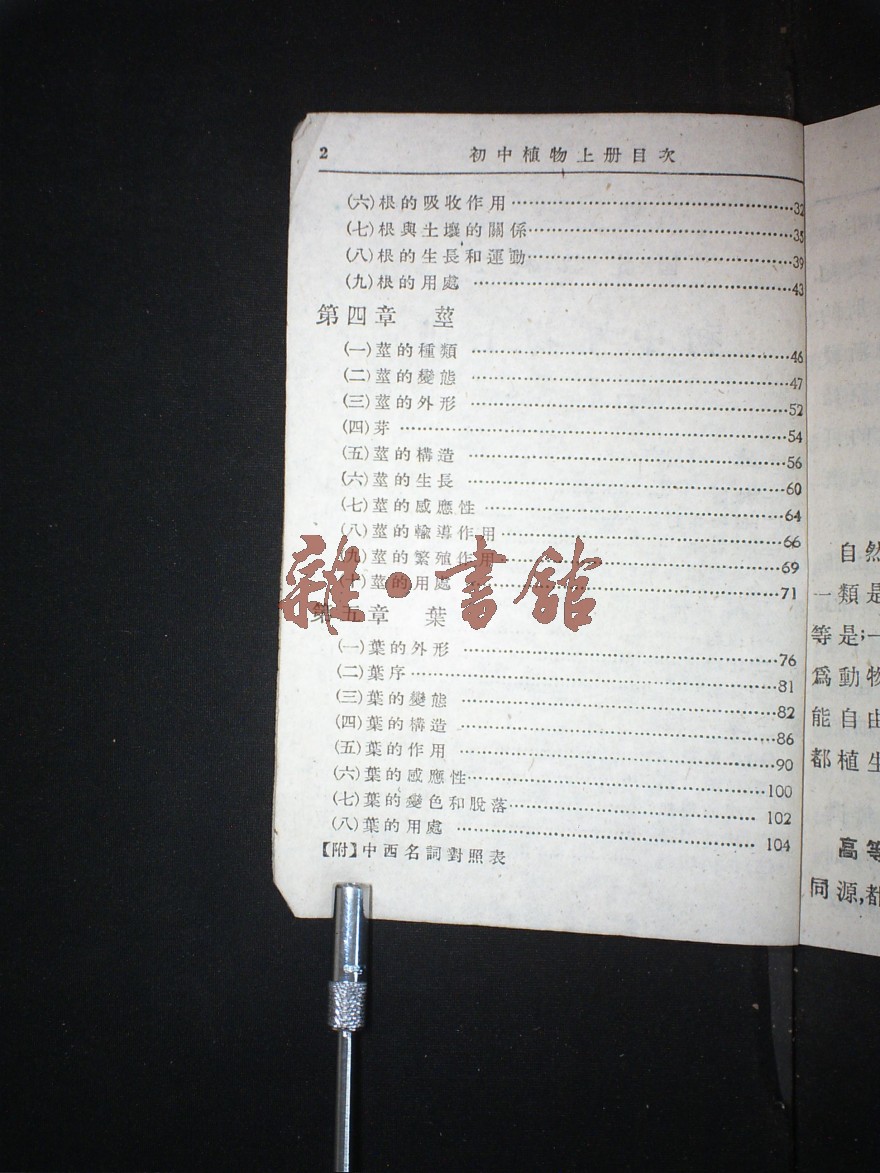 2 初中植物上册目次
(六)根的吸收作用……32
(七)根與土壤的關係……35
(八)根的生長和運動……39
(九)根的用處……43
第四章 莖
(一)莖的種類……46
(二)莖的變態……47
(三)莖的外形……52
(四)芽……54
(五)莖的構造……56
(六)莖的生長……60
(七)莖的感應性……64
(八)莖的輸導作用……66
(九)莖的繁殖作用……69
(十)莖的用處……71
第五章 葉
(一)葉的外形……76
(二)葉序……81
(三)葉的變態……82
(四)葉的構造……86
(五)葉的作用……90
(六)葉的感應性……100
(七)葉的變色和脫落……102
(八)葉的用處……104
【附】中西名詞對照表
雜·書館
自然
一類是
等是;一
爲動物
能自由
都植生
高等
同源,都